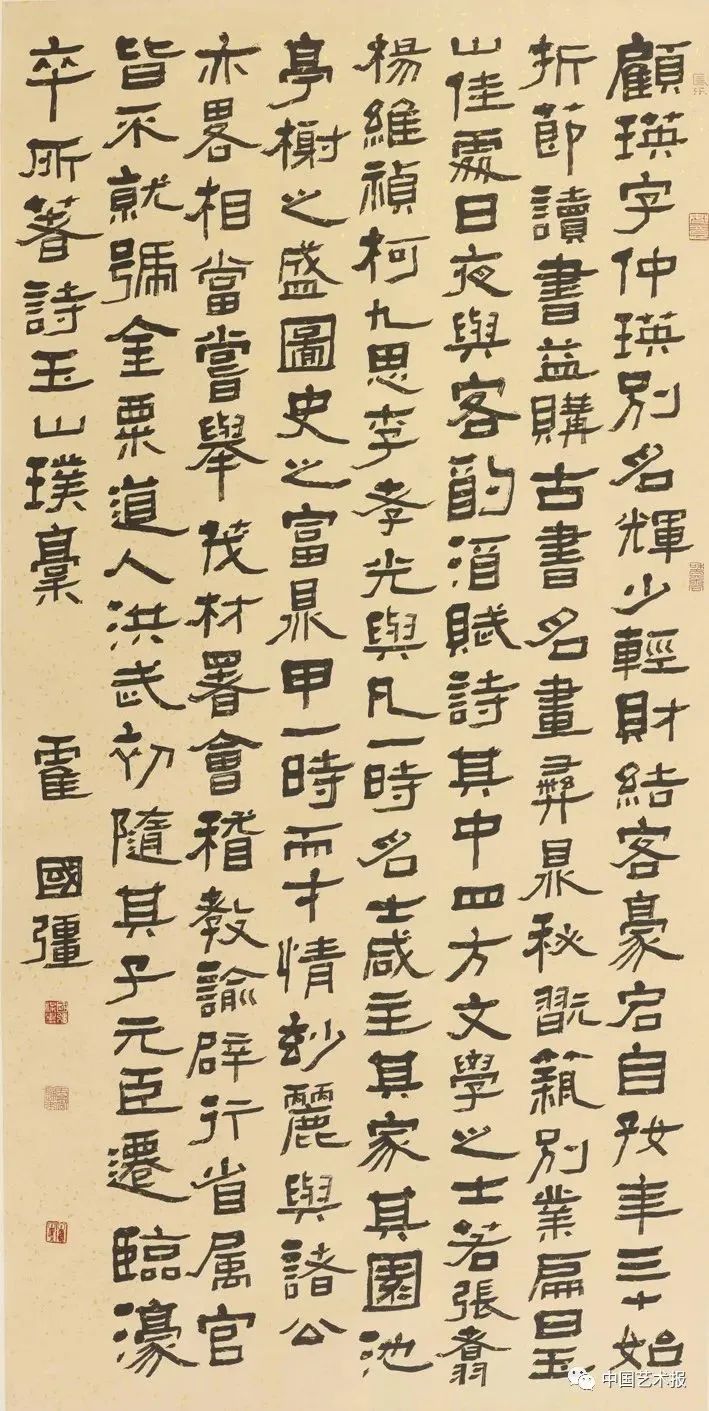 顧瑛字仲瑛別名輝少輕財結客豪宕自放年三十始
折節讀書益購古書名畫彝鼎秘翫築別業扁曰玉
山佳處日夜與客酌酒賦詩其中四方文學之士若張翥
楊維禎柯九思李孝光與凡一時名士咸主其家其園池
亭榭之盛圖史之富鼎甲一時而才情玅麗與諸公
亦畧相當嘗舉茂材署會稽教諭辟行省属官
皆不就號金粟道人洪武初隨其子元臣遷臨濠
卒所著詩玉山璞稾 霍國彊
中国艺术报